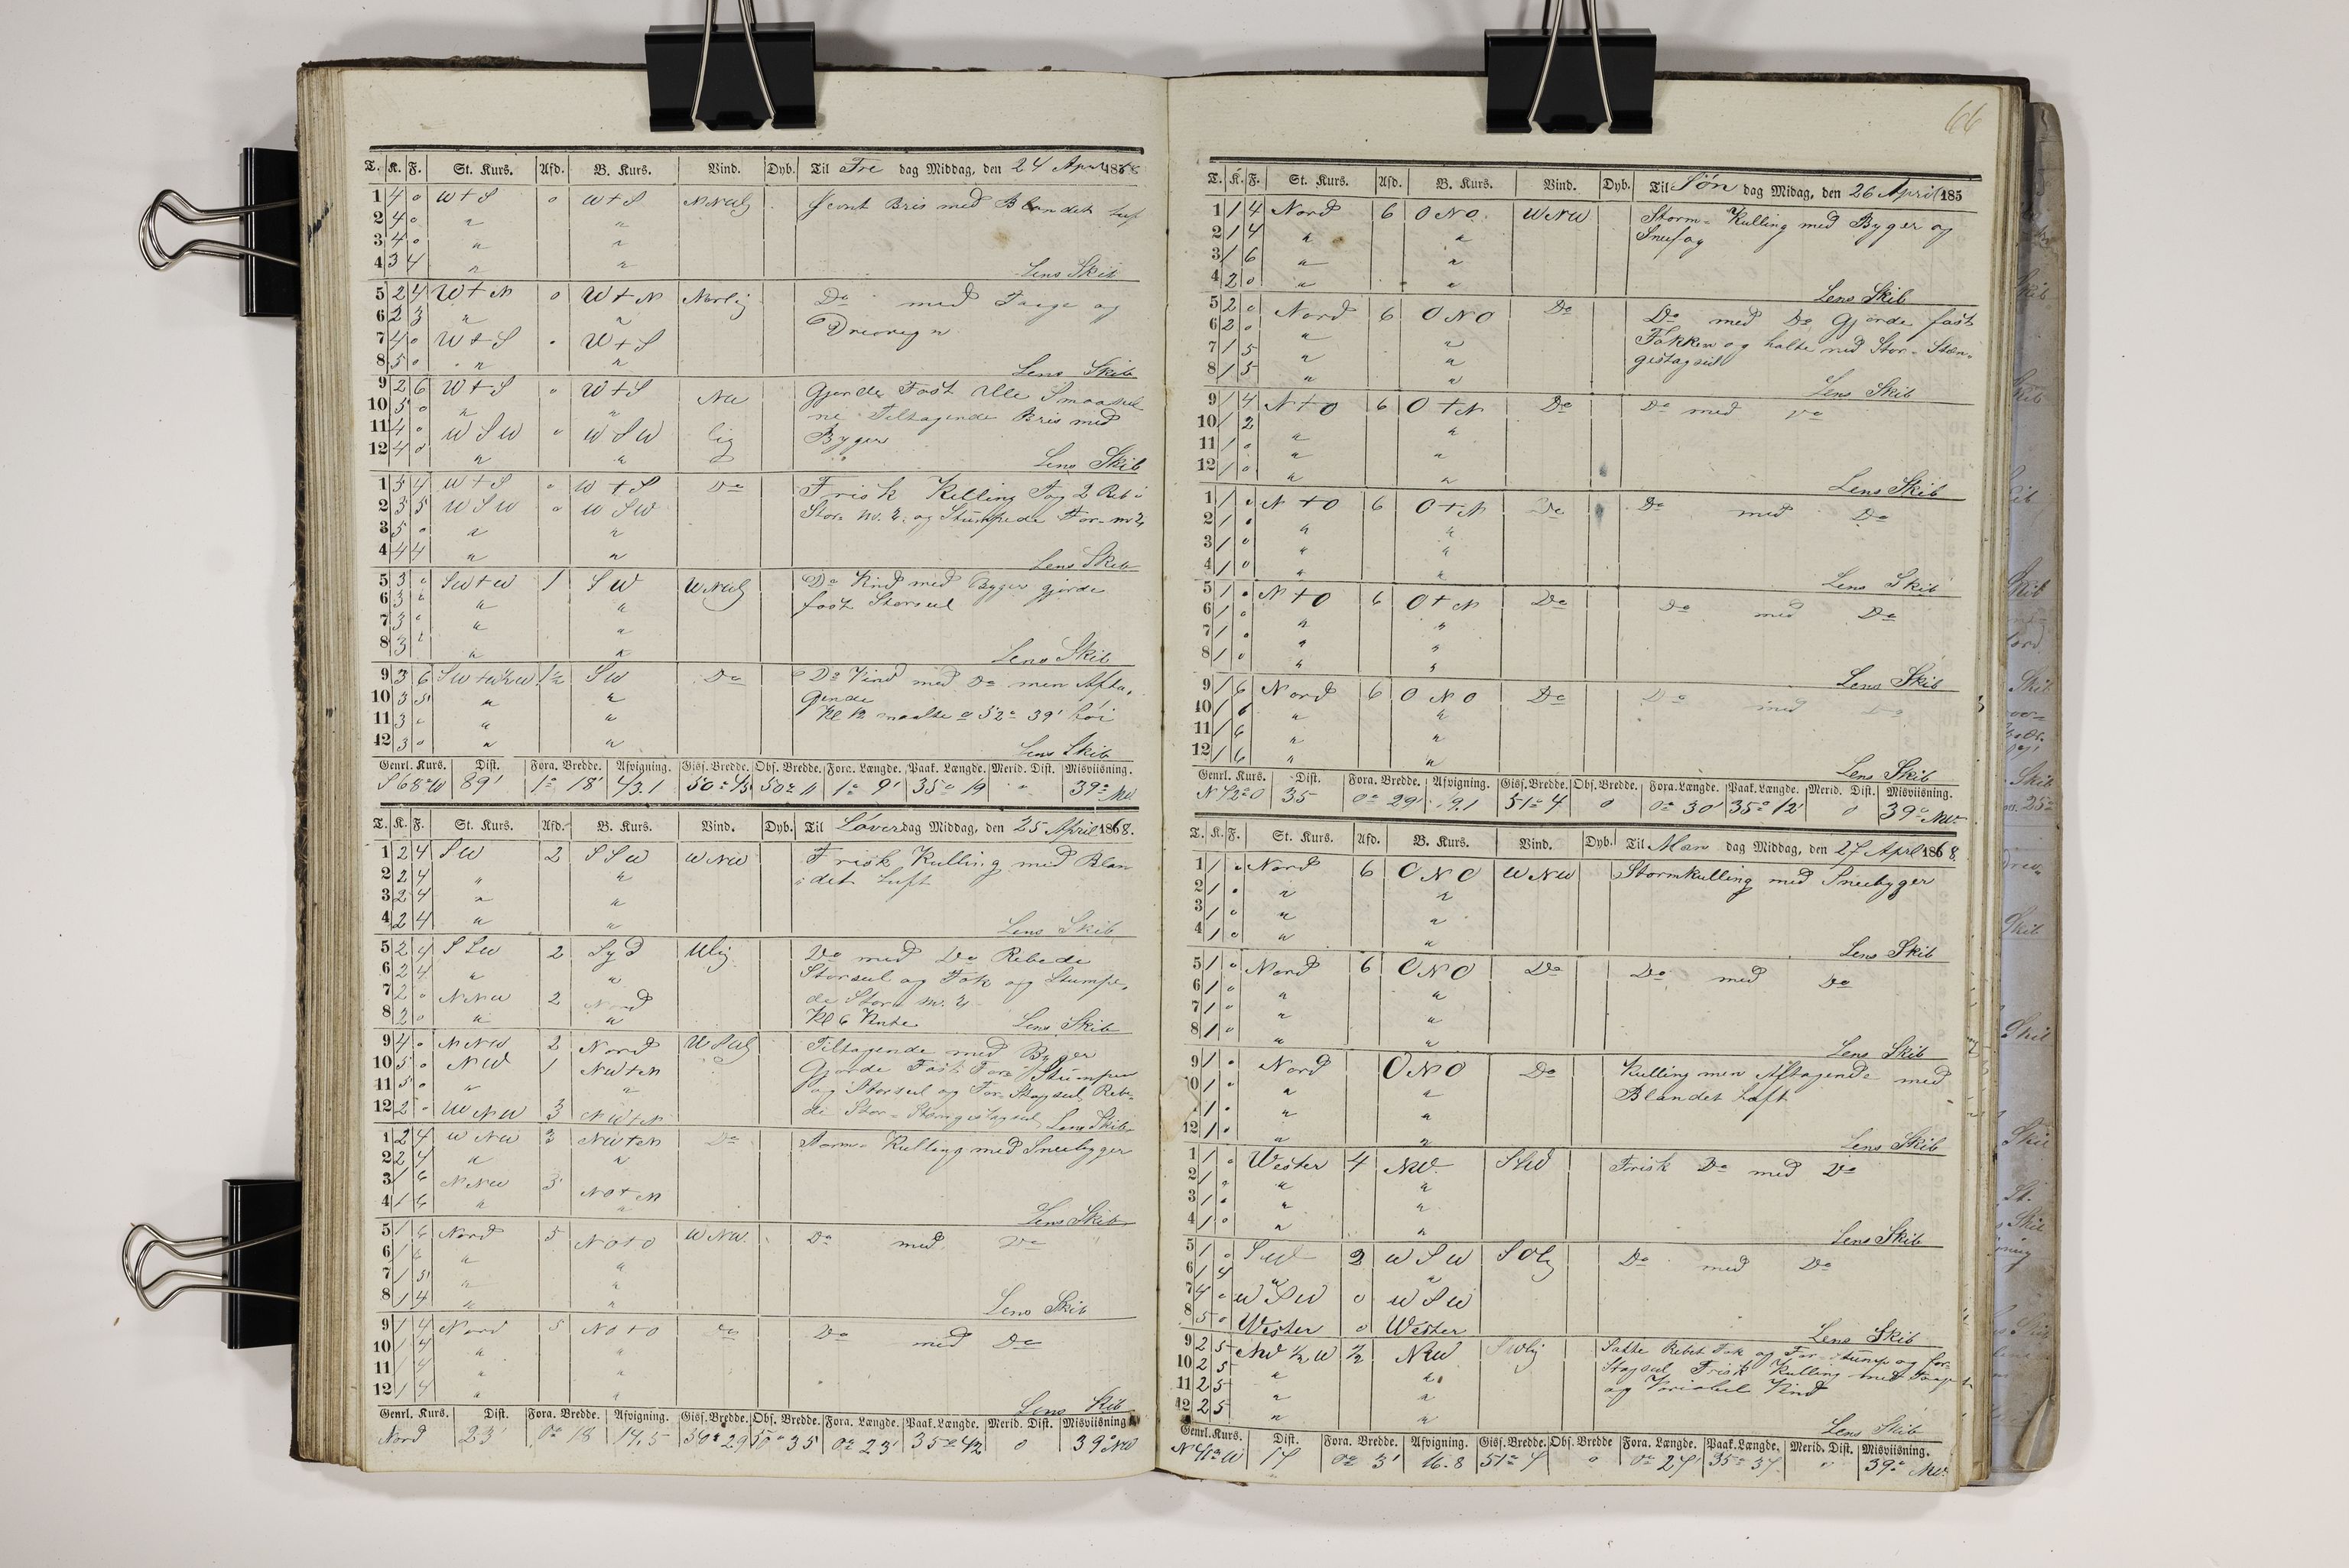 T. K. F. St. Kurs. Afd. B. Kurs. Vind. Dyb. Til Fre dag Middag, den 24 April 1868
1 4 0 W+S 0 W+S NNWlg Jevnt Bris med Blandet Luft
2 4 0 " "
3 4 0 " "
4 3 4 " " Lens Skib
5 2 4 W+N 0 W+N Nordlig Do med Taage og
6 2 3 " "
7 4 0 W+S 0 W+S
8 5 0 " " Lens Skib
9 2 6 W+S 0 W+S NW Gjorde Fast Alle Smaaseil
10 5 0 " " ne Tiltagende Bris med
11 4 0 WSW 0 WSW lig Byger
12 4 0 " " Lens Skib
1 5 4 W+S 0 W+S Do Frisk Kulling Tog 2 Reb i
2 3 5 WSW 0 WSW Stor- M. S. og Stumpede For- M S
3 5 0 " "
4 4 4 " " Lens Skib
5 3 0 SW+W 1 SW WNWlg Do Vind med Byger gjorde
6 3 0 " " fast Storseil
7 3 0 " "
8 3 " " Lens Skib
9 3 6 SW+W½W 1½ SW Do Do Vind med Do men Afta-
10 3 5 " " gende
11 3 0 " " Kl 12 maalte 52° 39' høi
12 3 0 " " Lens Skib
Genrl. Kurs. Dist. Fora. Bredde. Afvigning. Gisf. Bredde. Obs. Bredde. Fora. Længde. Paak. Længde. Merid. Dist. Misviisning.
S 68° W 89' 1° 18' 43.1 50° 45 50° 11 1° 9' 35° 19 0 39° NW
T. K. F. St. Kurs. Afd. B. Kurs. Vind. Dyb. Til Løver dag Middag, den 25 April 1868.
1 2 4 SW 2 SSW WNW Frisk Kulling med Blan
2 2 4 " " det Luft
3 2 4 " "
4 2 4 " " Lens Skib
5 2 4 SSW 2 Syd Wlig Do med Do Rebede
6 2 4 " " Storseil og Fok og Stumpe-
7 2 0 NNW 2 Nord de Store M. S.
8 2 0 " " Kl 6 Vente Lens Skib
9 4 0 NNW 2 Nord WSWlg Tiltagende med Byger
10 5 0 NW 1 NW+N Gjorde Fast For Stumpen
11 5 0 " " og Storseil og For-Stagseil, Rebe-
12 2 0 WNW 3 NW+N de Stor-Stængestagseil Lens Skib
1 2 4 WNW 3 NW+N Do Storm- Kulling med Sneebyger
2 2 4 " "
3 1 6 NNW 3 NO+N
4 1 6 " " Lens Skib
5 1 6 Nord 5 NO+O WNW. Do med Do
6 1 6 " "
7 1 5 " "
8 1 4 " " Lens Skib
9 1 4 Nord 5 NO+O Do Do med Do
10 1 4 " "
11 1 4 " "
12 1 4 " " Lens Skib
Genrl. Kurs. Dist. Fora. Bredde. Afvigning. Gisf. Bredde. Obs. Bredde. Fora. Længde. Paak. Længde. Merid. Dist. Misviisning.
Nord 23' 0° 18 14.5 50° 29 50° 35 0° 23' 35° 42 0 39° NW
66
T. K. F. St. Kurs. Afd. B. Kurs. Vind. Dyb. Til Søn dag Midag, den 26 April 185
1 1 4 Nord 6 ONO. WNW Storm- Kulling med Byger og
2 1 4 " " Sneefog
3 1 6 " "
4 2 0 " " Lens Skib
5 2 0 Nord 6 ONO Do Do med Do Gjorde fast
6 2 0 " " Fokken og halte ned Stor-Stæn-
7 1 5 " " gestagseil
8 1 5 " " Lens Skib
9 1 4 N+O 6 O+N Do Do med Do
10 1 2 " "
11 1 0 " "
12 1 0 " " Lens Skib
1 1 0 N+O 6 O+N Do Do med Do
2 1 0 " "
3 1 0 " "
4 1 0 " " Lens Skib
5 1 0 N+O 6 O+N Do Do med Do
6 1 0 " "
7 1 0 " "
8 1 0 " " Lens Skib
9 1 6 Nord 6 ONO Do Do med Do
10 1 6 " "
11 1 6 " "
12 1 6 " " Lens Skib
Genrl. Kurs. Dist. Fora. Bredde. Afvigning. Gisf. Bredde. Obs. Bredde. Fora. Længde. Paak. Længde. Merid. Dist. Misviisning.
N 42° O 35 0° 29' 19.1 51° 4 0 0° 30' 35° 12' 0 39° NW.
T. K. F. St. Kurs. Afd. B. Kurs. Vind. Dyb. Til Man dag Middag, den 27 April 1868.
1 1 0 Nord 6 ONO WNW Stormkulling med Sneebyger
2 1 0 " "
3 1 0 " "
4 1 0 " " Lens Skib
5 1 0 Nord 6 ONO Do Do med Do
6 1 0 " "
7 1 0 " "
8 1 0 " " Lens Skib
9 1 0 Nord ONO Do Kulling men Aftagende med
10 1 0 " " Blandet Luft
11 1 0 " "
12 1 0 " " Lens Skib
1 1 0 Wester 4 NW. SW Frisk Do med Do
2 1 0 " "
3 1 0 " "
4 1 0 " " Lens Skib
5 1 0 SW 2 WSW SOlg Do med Do
6 1 4 " "
7 4 0 WSW 0 WSW
8 5 0 Wester 0 Wester Lens Skib
9 2 5 NW ½ W ½ NW Satte Rebet Fok og For- Stump og For-
10 2 5 " " Stagseil Frisk Kulling med
11 2 5 " " og Variabel Vind
12 2 5 " " Lens Skib
Genrl. Kurs. Dist. Fora. Bredde. Afvigning. Gisf. Bredde. Obs. Bredde Fora. Længde. Paak. Længde. Merid. Dist. Misviisning.
N 41° W 17 0° 3' 16.8 51° 7 0 0° 27' 35° 37 0 39° NW.